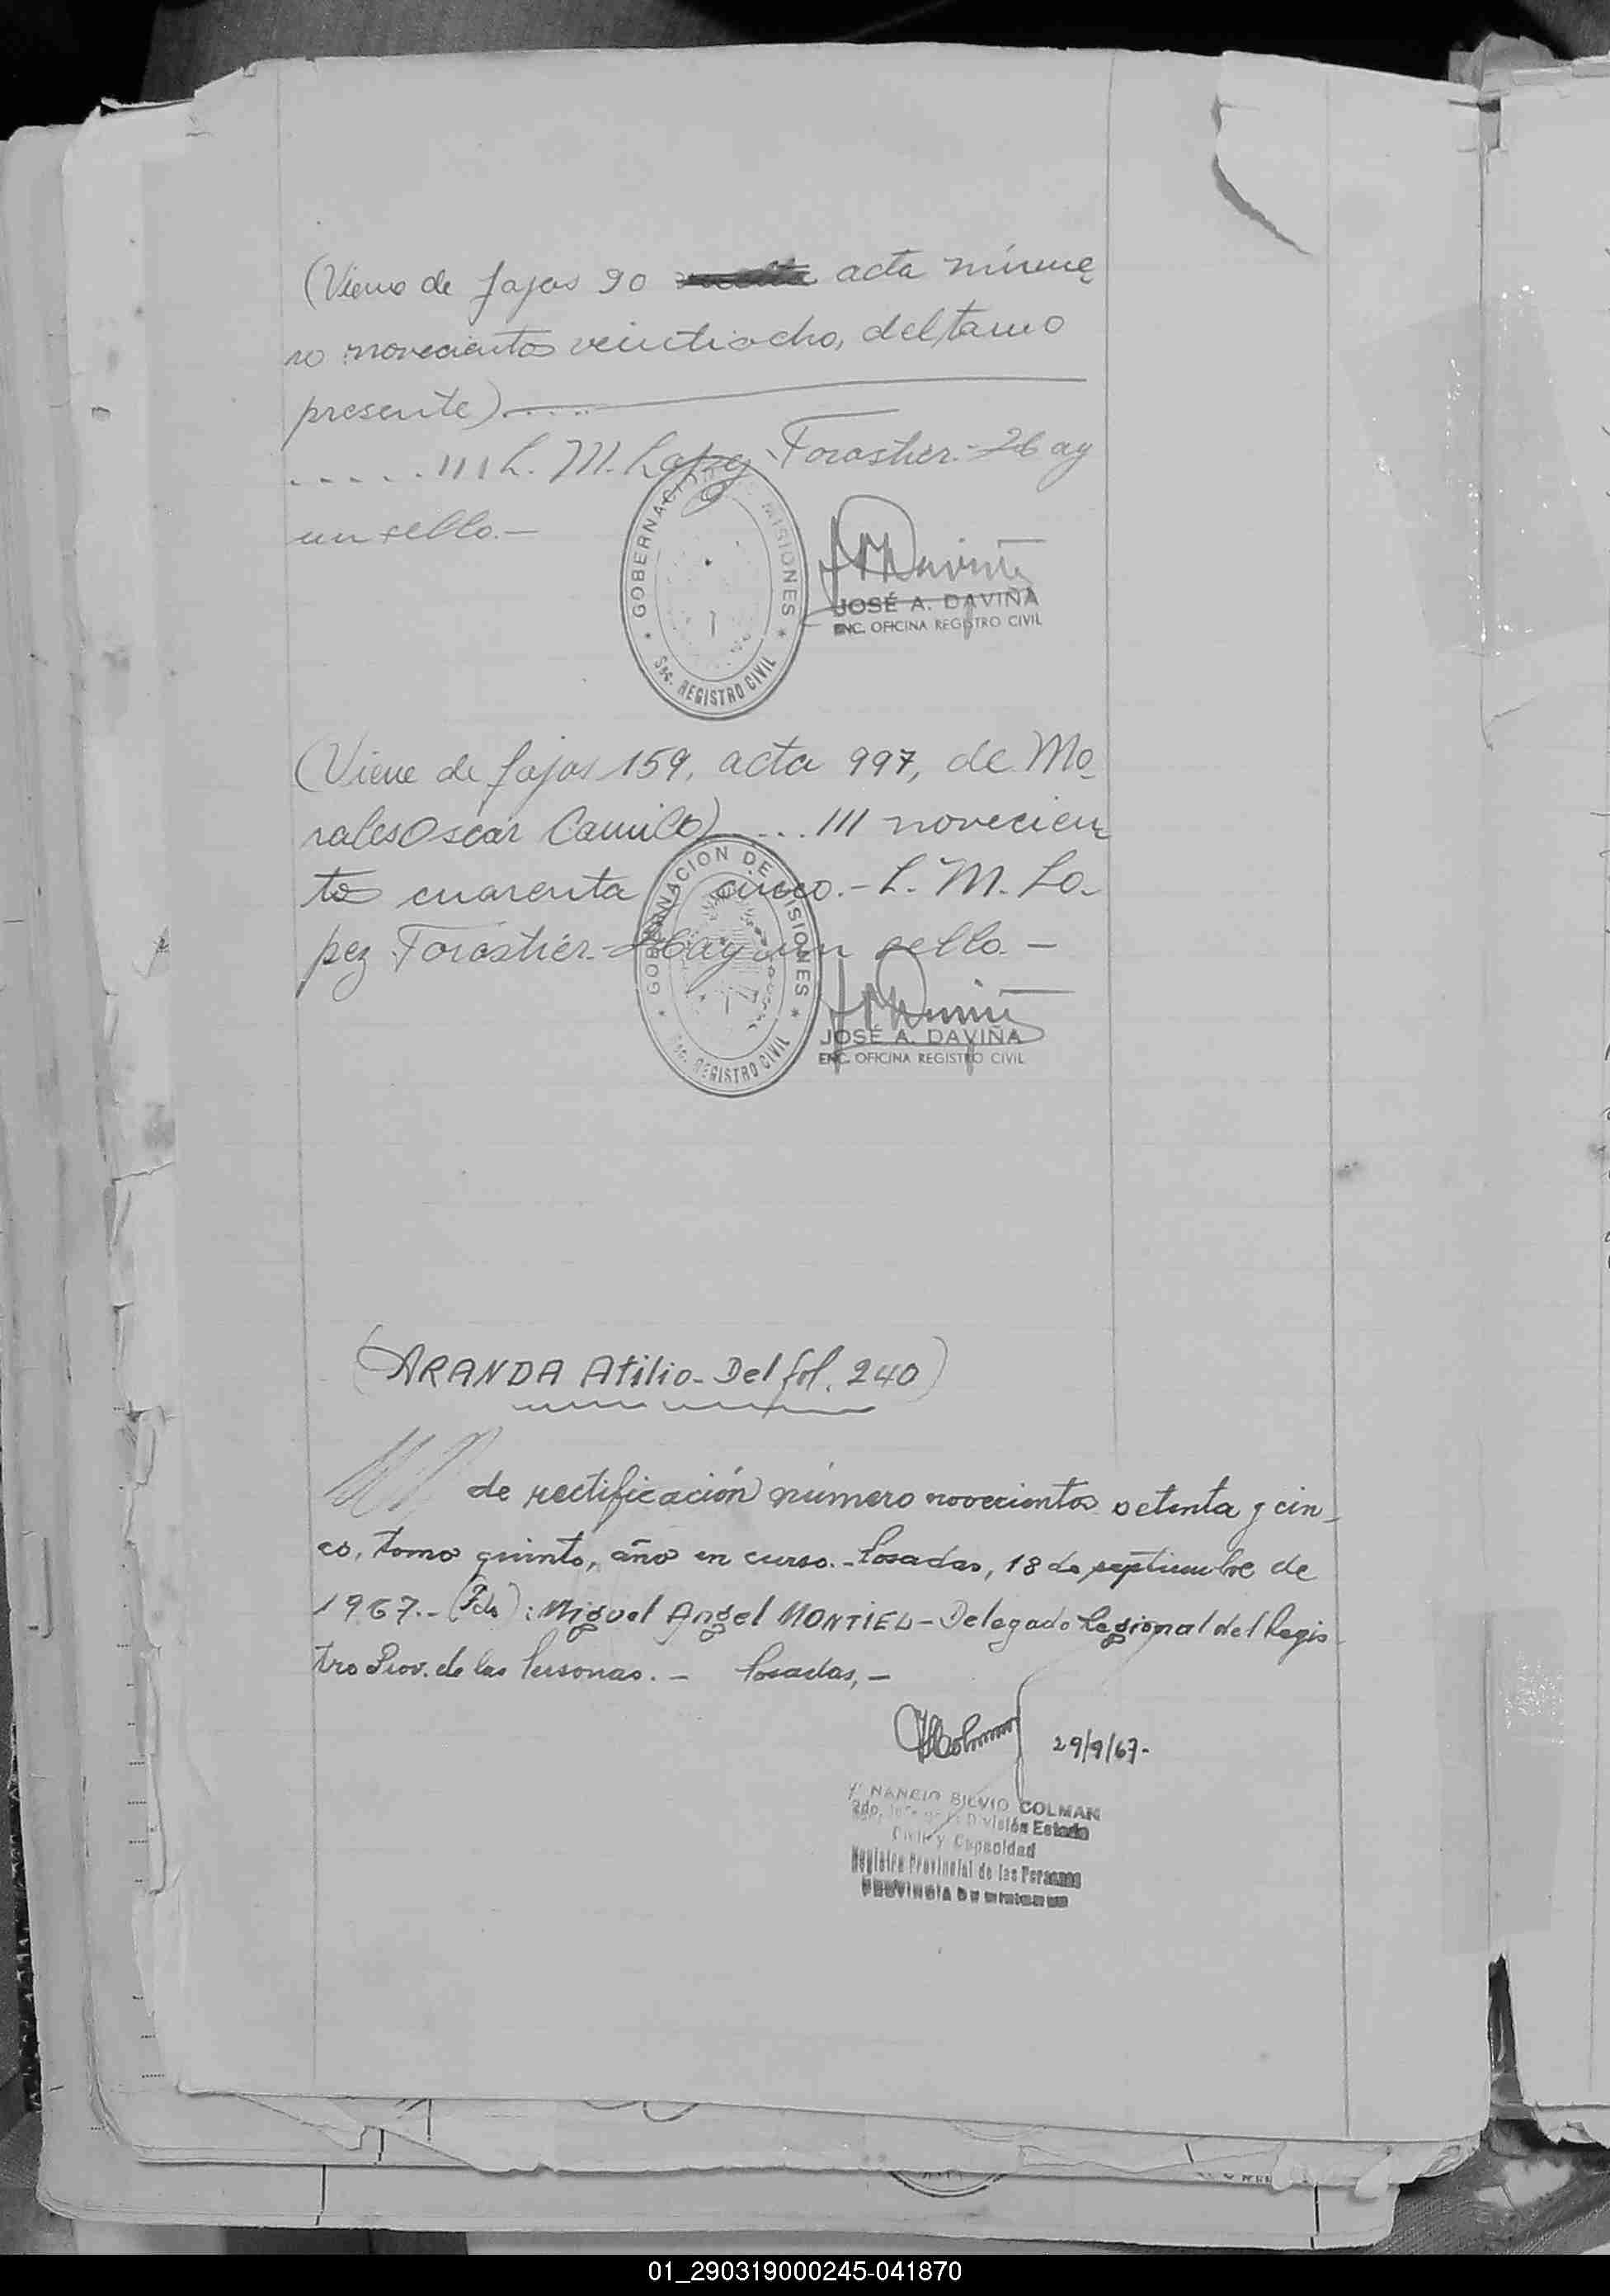 (Viene de fojas 90 acta núme
ro novecientos veintiocho, del tomo
presente).....
..... /// L. M. Lopez Forastier.- Hay
un sello.-
GOBERNACION DE MISIONES
Sec. REGISTRO CIVIL
JOSÉ A. DAVIÑA
ENC. OFICINA REGISTRO CIVIL
(Viene de fojas 159, acta 997, de Mo-
rales Oscar Camilo) .... /// novecien
tos cuarenta cinco.- L. M. Lo-
pez Forastier.- Hay un sello.-
GOBERNACION DE MISIONES
Sec. REGISTRO CIVIL
JOSÉ A. DAVIÑA
ENC. OFICINA REGISTRO CIVIL
(ARANDA Atilio- Del fol. 240)
de rectificación número novecientos setenta y cin-
co, tomo quinto, año en curso.- Posadas, 18 de septiembre de
1967.- (Fdo): Miguel Angel MONTIEL- Delegado Regional del Regis-
tro Prov. de las Personas.- Posadas,-
29/9/67.-
SILVIO COLMAN
2do. Jefe de la División Estado
Civil y Capacidad
Registro Provincial de las Personas
PROVINCIA DE MISIONES
01_290319000245-041870